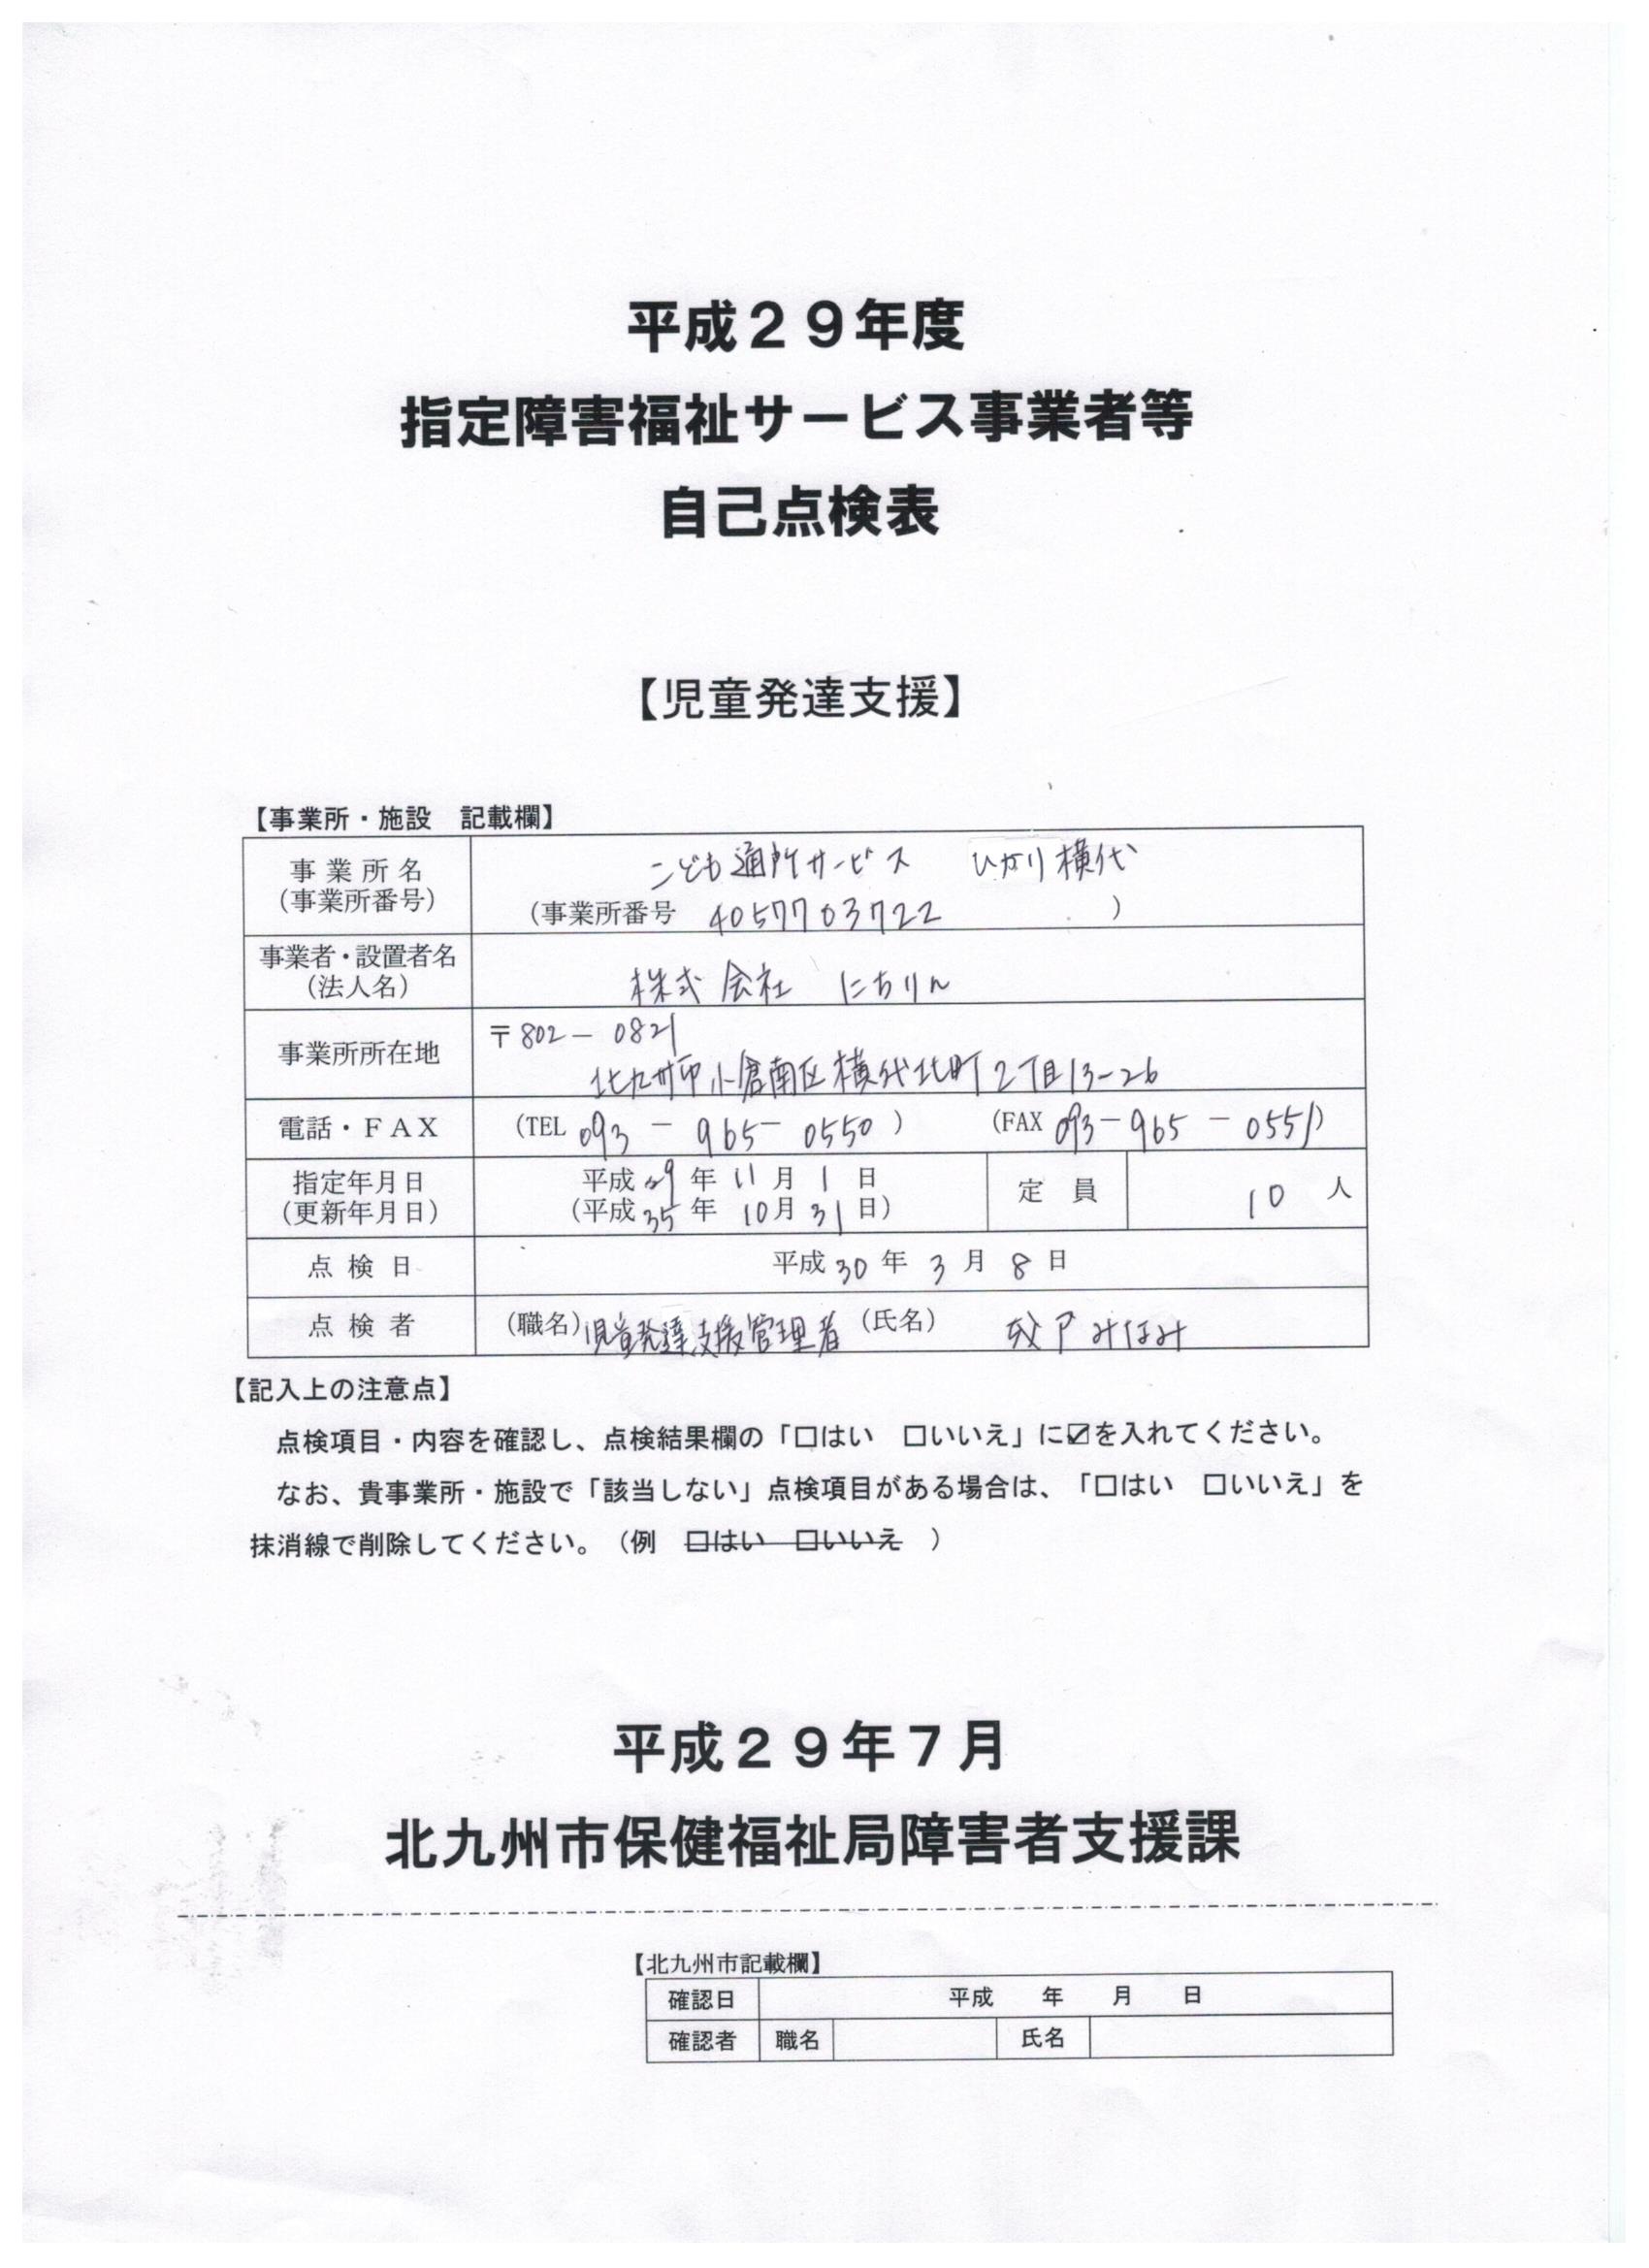 平成２９年度
指定障害福祉サービス事業者等
自己点検表
【児童発達支援】
【事業所・施設　記載欄】
事業所名 こども通所サービス　ひかり横代
（事業所番号） （事業所番号 4057703722 ）
事業者・設置者名
（法人名） 株式会社　にちりん
事業所所在地 〒802－0821
北九州市小倉南区横代北町2丁目13-26
電話・ＦＡＸ （TEL 093－965－0550） （FAX 093－965－0551）
指定年月日 平成29年11月1日 定員 10人
（更新年月日） （平成35年10月31日）
点検日 平成30年3月8日
点検者 （職名）児童発達支援管理者 （氏名） 戸みほみ
【記入上の注意点】
点検項目・内容を確認し、点検結果欄の「□はい　□いいえ」に☑を入れてください。
なお、貴事業所・施設で「該当しない」点検項目がある場合は、「□はい　□いいえ」を
抹消線で削除してください。（例　□はい　□いいえ　）
平成２９年７月
北九州市保健福祉局障害者支援課
【北九州市記載欄】
確認日 平成　年　月　日
確認者 職名 氏名